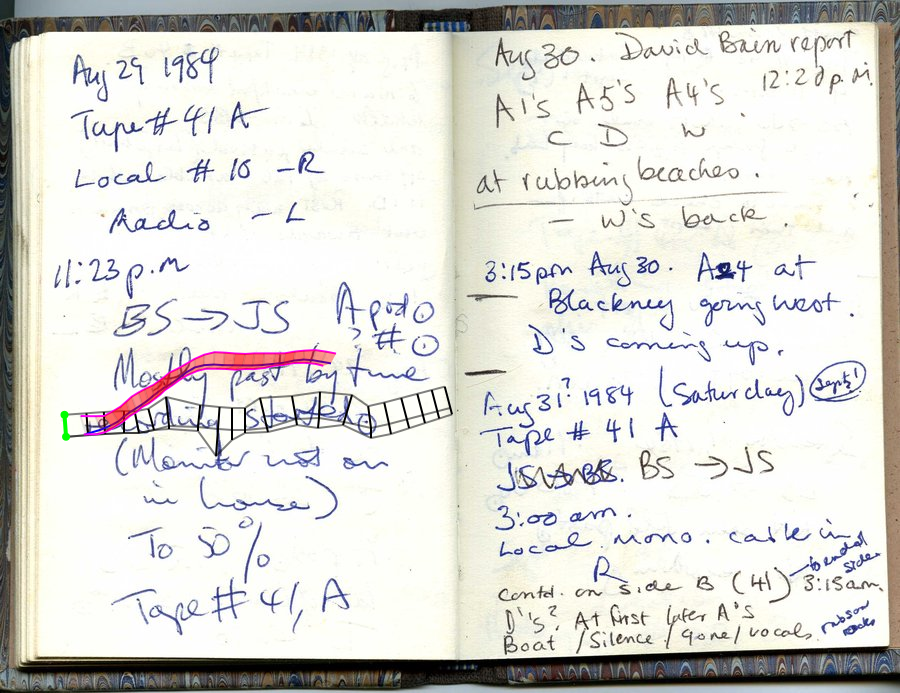 Aug 29 1984
Tape # 41 A
Local # 10 - R
Radio - L
11:23 p.m
BS → JS A pod ①
? # ①
Mostly past by time
started
(Monitor not on
in house)
To 50%
Tape # 41, A
Aug 30. David Bain report
12:20 p.m.
A1's A5's A4's
C D W
at rubbing beaches.
- W's back.
3:15pm Aug 30. A4 at
Blackney going west.
D's coming up.
Aug 31? 1984 (Saturday) Sept 1
Tape # 41 A
JS → BS. BS → JS
3:00 am.
Local mono. cable in
R
to end of side
Contd. on side B (41) 3:15am.
D's? At first later A's
Boat / Silence / gone / vocals